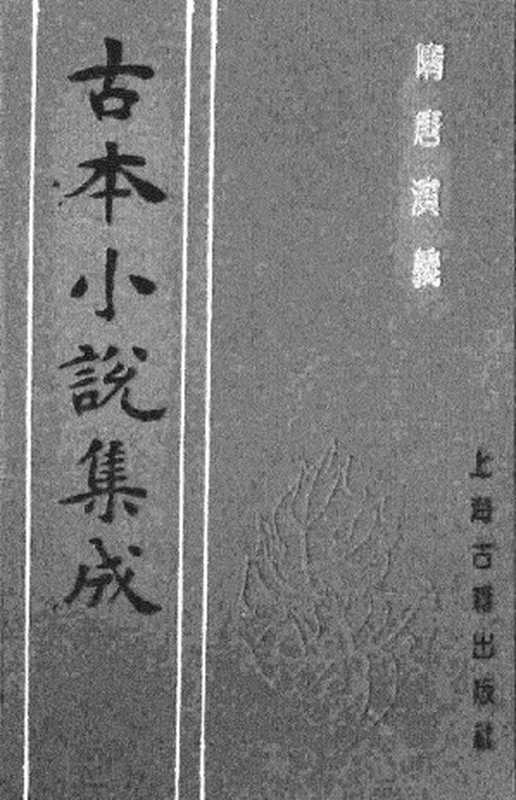 隋唐演義
古本小說集成
上海古籍出版社